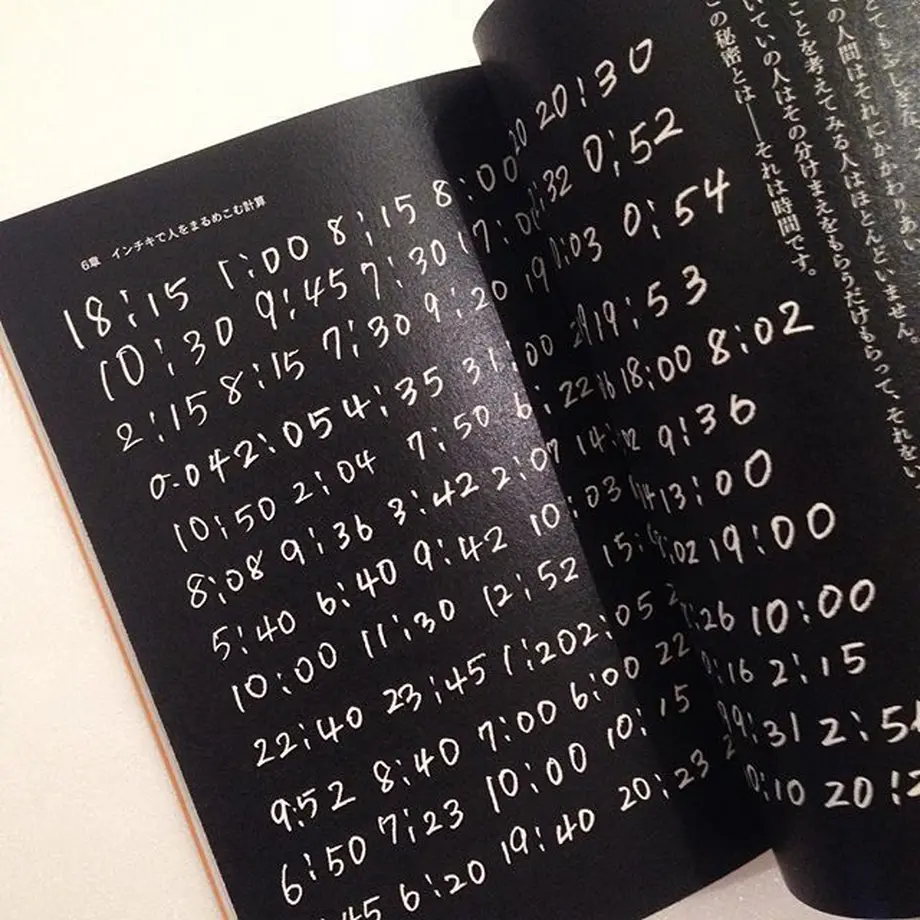 6章 インチキで人をまるめこむ計算
18:15 1:00 8:15 8:00
10:30 9:45 7:30 17:00
2:15 8:15 7:30 9:20
0.04 2:05 4:35 31:00
10:50 2:04 7:50 6:22
8:08 9:36 3:42 2:07 14:
5:40 6:40 9:42 10:03
10:00 11:30 12:52 15:
22:40 23:45 1:20 2:05
9:52 8:40 7:00 6:00 22
6:50 7:23 10:00 10:15
:45 6:20 19:40 20:23
の人間はそれにかかわりあい
ことを考えてみる人はほとんどいません。
いていの人はその分けまえをもらうだけもらって、それをい
この秘密とは――それは時間です。
20 20:30
:32 0:52
0:03 0:54
19:53
16 18:00 8:02
02 9:36
14 13:00
:02 19:00
:26 10:00
:16 2:15
9:31 2:5
:10 20:2